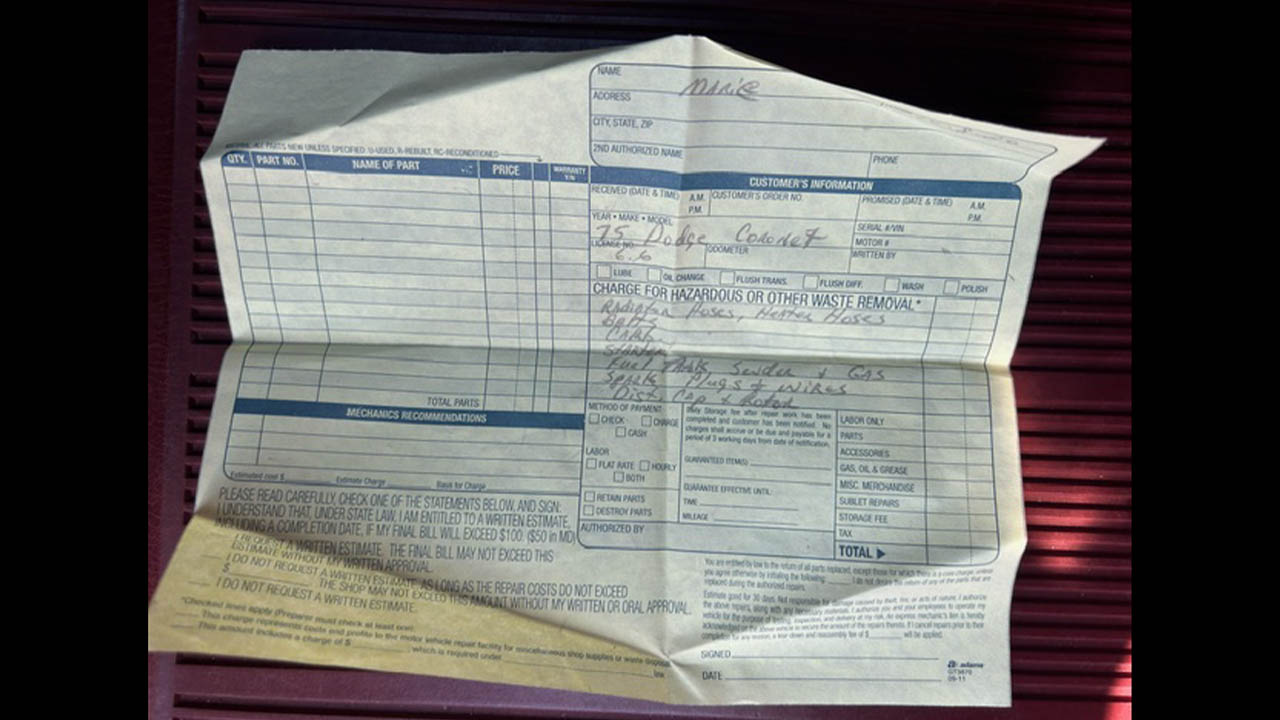 NAME
MARIE
ADDRESS
CITY, STATE, ZIP
2ND AUTHORIZED NAME
PHONE
ALL PARTS NEW UNLESS SPECIFIED: U-USED, R-REBUILT, RC-RECONDITIONED
QTY. PART NO. NAME OF PART PRICE WARRANTY Y/N
TOTAL PARTS
CUSTOMER'S INFORMATION
RECEIVED (DATE & TIME) A.M. P.M. CUSTOMER'S ORDER NO. PROMISED (DATE & TIME) A.M. P.M.
YEAR • MAKE • MODEL SERIAL #/VIN
75 Dodge Coronet MOTOR #
LICENSE NO. ODOMETER WRITTEN BY
6.6
LUBE OIL CHANGE FLUSH TRANS. FLUSH DIFF. WASH POLISH
CHARGE FOR HAZARDOUS OR OTHER WASTE REMOVAL*
Radiator Hoses, Heater Hoses
Belts
CARb
STARTER
Fuel TANK, Sender & GAS
Spark Plugs & WIRES
Dist, CAP & ROTOR
MECHANICS RECOMMENDATIONS
Estimated cost $ Estimate Charge Basis for Charge
METHOD OF PAYMENT
CHECK CHARGE
CASH
LABOR
FLAT RATE HOURLY
BOTH
RETAIN PARTS
DESTROY PARTS
AUTHORIZED BY
Daily Storage fee after repair work has been
completed and customer has been notified. No
charges shall accrue or be due and payable for a
period of 3 working days from date of notification.
GUARANTEED ITEM(S)
GUARANTEE EFFECTIVE UNTIL:
TIME
MILEAGE
LABOR ONLY
PARTS
ACCESSORIES
GAS, OIL & GREASE
MISC. MERCHANDISE
SUBLET REPAIRS
STORAGE FEE
TAX
TOTAL
PLEASE READ CAREFULLY, CHECK ONE OF THE STATEMENTS BELOW, AND SIGN:
I UNDERSTAND THAT, UNDER STATE LAW, I AM ENTITLED TO A WRITTEN ESTIMATE,
INCLUDING A COMPLETION DATE, IF MY FINAL BILL WILL EXCEED $100. ($50 in MD)
I REQUEST A WRITTEN ESTIMATE. THE FINAL BILL MAY NOT EXCEED THIS
ESTIMATE WITHOUT MY WRITTEN APPROVAL.
I DO NOT REQUEST A WRITTEN ESTIMATE, AS LONG AS THE REPAIR COSTS DO NOT EXCEED
$ THE SHOP MAY NOT EXCEED THIS AMOUNT WITHOUT MY WRITTEN OR ORAL APPROVAL.
I DO NOT REQUEST A WRITTEN ESTIMATE.
*Checked lines apply (Preparer must check at least one):
This charge represents costs and profits to the motor vehicle repair facility for miscellaneous shop supplies or waste disposal.
This amount includes a charge of $ which is required under law
You are entitled by law to the return of all parts replaced, except those for which there is a core charge, unless
you agree otherwise by initialing the following: I do not desire the return of any of the parts that are
replaced during the authorized repairs.
Estimate good for 30 days. Not responsible for damage caused by theft, fire, or acts of nature. I authorize
the above repairs, along with any necessary materials. I authorize you and your employees to operate my
vehicle for the purpose of testing, inspection, and delivery at my risk. An express mechanic's lien is hereby
acknowledged on the above vehicle to secure the amount of the repairs thereto. If I cancel repairs prior to their
completion for any reason, a tear down and reassembly fee of $ will be applied.
SIGNED
DATE
adams
GT3870
09-11